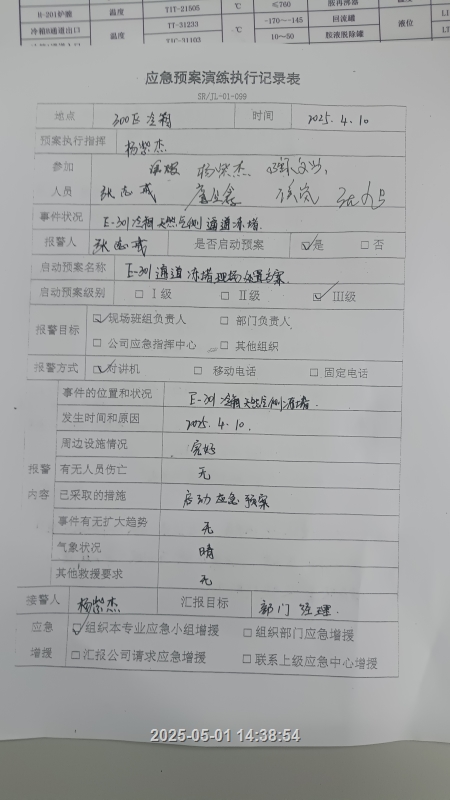 H-201炉膛 温度 TIT-21505 ℃ ≤760 胺再沸器
冷箱B通道出口 温度 TT-31233 ℃ -170～-145 回流罐 液位
TIC-31103 10～50 胺液脱除罐
应急预案演练执行记录表
SR/JL-01-099
地点 300区冷箱 时间 2025.4.10
预案执行指挥 杨崇杰
参加 杨崇杰、
人员 张志戎
事件状况 E-301冷箱天然气侧通道冻堵.
报警人 张志戎 是否启动预案 ☑是 □否
启动预案名称 E-301通道冻堵现场处置方案.
启动预案级别 □Ⅰ级 □Ⅱ级 ☑Ⅲ级
报警目标 ☑现场班组负责人 □部门负责人
□公司应急指挥中心 □其他组织
报警方式 ☑对讲机 □移动电话 □固定电话
事件的位置和状况 E-301冷箱天然气侧冻堵.
发生时间和原因 2025.4.10.
周边设施情况 完好
报警 有无人员伤亡 无
内容 已采取的措施 启动应急预案
事件有无扩大趋势 无
气象状况 晴
其他救援要求 无
接警人 杨崇杰 汇报目标 部门经理.
应急 ☑组织本专业应急小组增援 □组织部门应急增援
增援 □汇报公司请求应急增援 □联系上级应急中心增援
2025-05-01 14:38:54